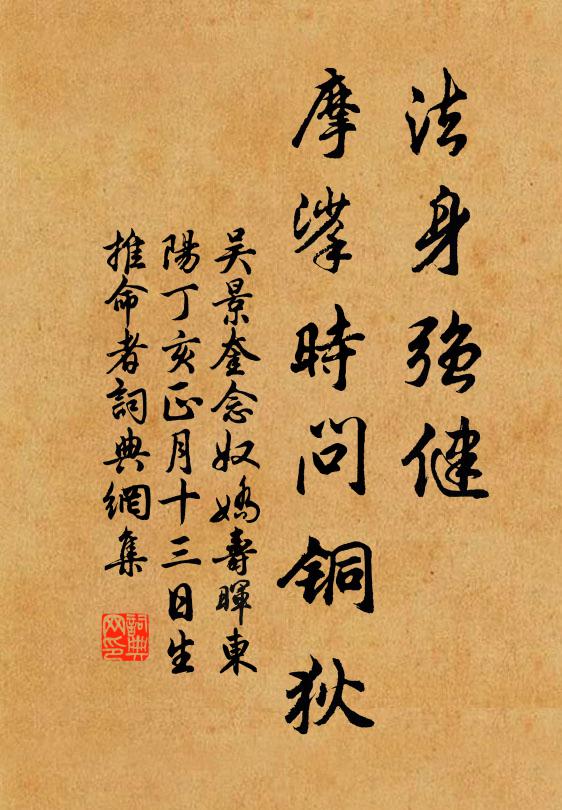 法身強健
摩挲時問銅狄
吴景奎念奴嬌壽暉東
陽丁亥正月十三日生
推命者詞典網集
詞典網印